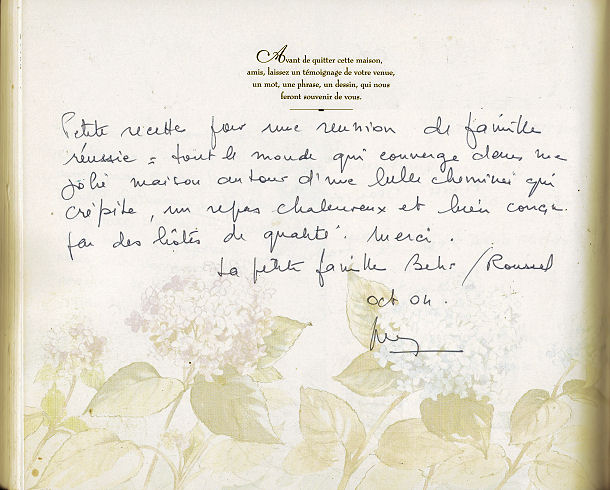 Avant de quitter cette maison,
amis, laissez un témoignage de votre venue,
un mot, une phrase, un dessin, qui nous
feront souvenir de vous.
Petite recette pour une reunion de famille
réussie = tout le monde qui converge dans une
jolie maison autour d'une belle cheminée qui
crépite, un repas chaleureux et bien conçu
par des hôtes de qualité. Merci.
La petite famille / Roussel
oct 04.